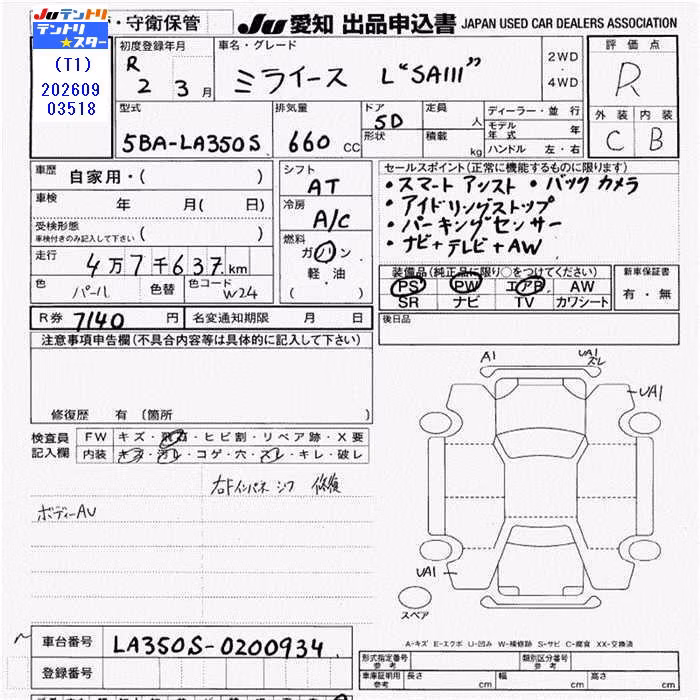 Juテントリ
テントリ
テント☆スター
(T1)
202609
03518
・守衛保管
JU 愛知 出品申込書 JAPAN USED CAR DEALERS ASSOCIATION
初度登録年月
R 2 3月
車名・グレード
ミライース L“SAIII”
2WD
・
4WD
評価点
R
外装 内装
C B
型式
5BA-LA350S
排気量
660 CC
ドア 5D
形状
定員 人
積載 kg
ディーラー・並行
モデル年式 年
ハンドル 左・右
車歴 自家用・( )
車検 年 月( 日)
受検形態
車検付きのみ記入して下さい ( )
走行 4万7千637km
色 パール 色替 色コード W24
シフト
AT
冷房
A/C
燃料
ガソリン
軽油
( )
セールスポイント(正常に機能するものに限ります)
・スマートアシスト ・バックカメラ
・アイドリングストップ
・パーキングセンサー
・ナビ+テレビ+AW
装備品(純正品に限り○をつけてください)
PS PW エアB AW
SR ナビ TV カワシート
新車保証書
有・無
R券 7140 円 名変通知期限 月 日
後日品
注意事項申告欄(不具合内容等は具体的に記入して下さい)
修復歴 有〔箇所 〕
検査員
記入欄
FW キズ・飛石・ヒビ割・リペア跡・X要
内装 キズ・汚レ・コゲ・穴・スレ・キレ・破レ
右Fインパネ シワ 修復
ボディーAU
A1
UA1
ズレ
UA1
UA1
スペア
A-キズ E-エクボ U-凹み W-補修跡 S-サビ C-腐食 XX-交換済
車台番号 LA350S-0200934
登録番号
形式指定番号
参考
類別区分番号
参考
車庫証明用
参考
長さ cm 幅 cm 高さ cm